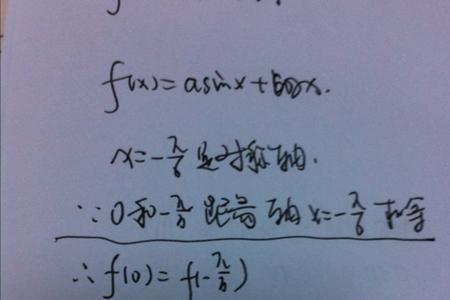 f(x)=asinx+cosx.
x=-π/6 是对称轴.
∵0和-π/3 距离轴x=-π/6 相等
∴f(0)=f(-π/3)